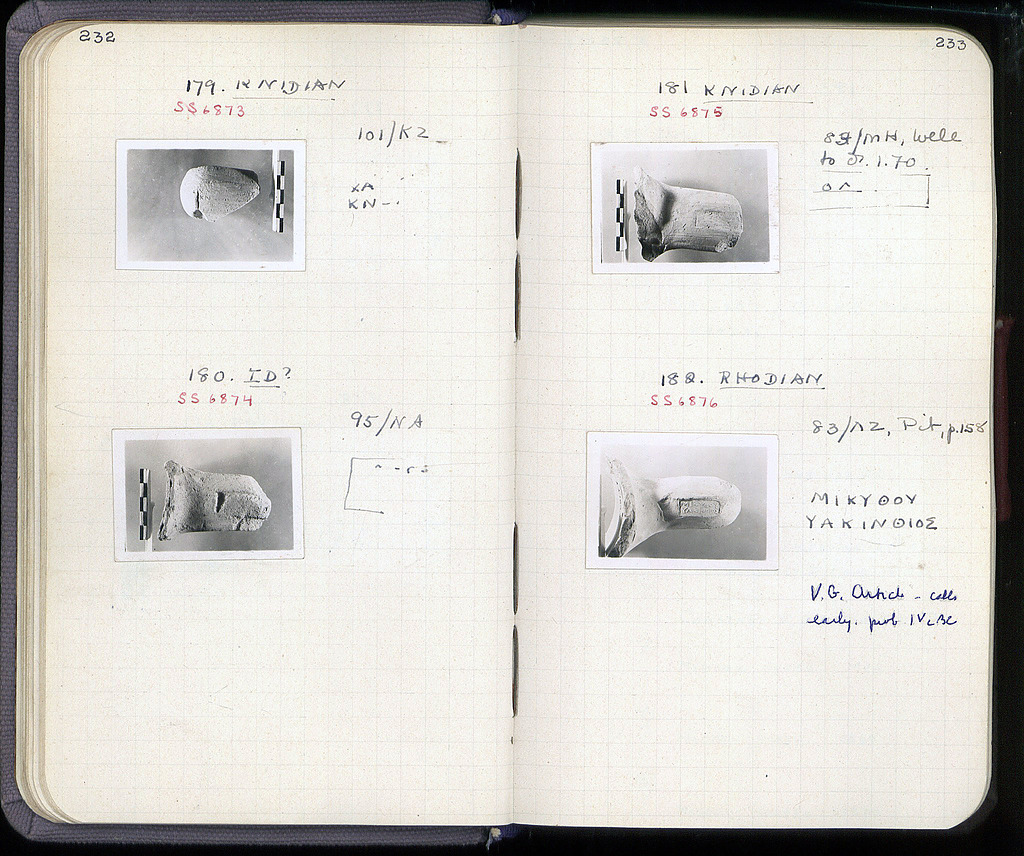 232
179. KNIDIAN
SS 6873
101/KZ
ΧΑ
ΚΝ--
180. ID?
SS 6874
95/ΝΑ
233
181 KNIDIAN
SS 6875
/ΜΗ, Well
to 1.70.
182. RHODIAN
SS 6876
83/ΛΖ, Pit, p.158
ΜΙΚΥΘΟΥ
ΥΑΚΙΝΘΙΟΣ
V.G. Article - calls
early. prob IVc BC